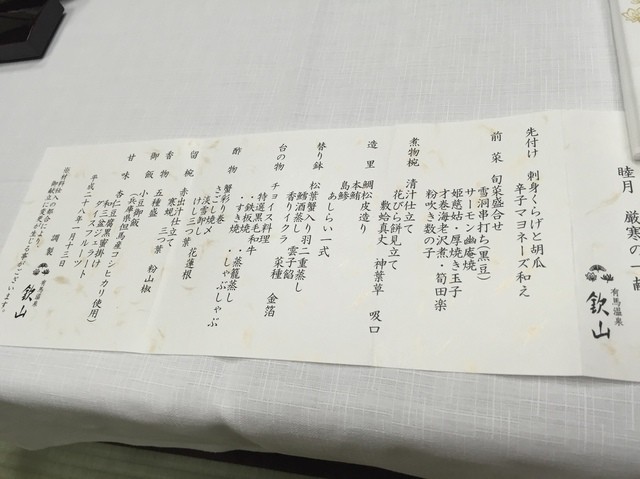 睦月 厳寒の一献
有馬温泉
欽山
先付け 刺身くらげと胡瓜
辛子マヨネーズ和え
前菜 旬菜盛合せ
雪洞串打ち(黒豆)
サーモン幽庵焼
姫慈姑・厚焼き玉子
才巻海老沢煮・筍田楽
粉吹き数の子
煮物椀 清汁仕立て
花びら餅見立て
敷蛤真丈 神葉草 吸口
造里 鯛松皮造り
本鮪
島鯵
あしらい一式
替り鉢 松葉蟹入り羽二重蒸し
鱈酒蒸し 雲子餡
香りイクラ 菜種 金箔
台の物 チョイス料理
特選黒毛和牛
・鉄板焼 ・蒸籠蒸し
・すき焼 ・しゃぶしゃぶ
酢物 蟹彩り巻
さごし焼〆
淡雪卸し
けし三つ葉 花蓮根
留椀 赤出汁仕立て
寒焼 三つ葉 粉山椒
香物 五種盛
御飯 小豆御飯
(兵庫県但馬産コシヒカリ使用)
甘味 杏仁豆腐黒蜜掛け
和三盆ジェラート
ダイスフルーツ
平成二十八年一月十三日
調製
原材料仕入の都合により、
御献立に変更が生じる事がございます。
有馬温泉
欽山